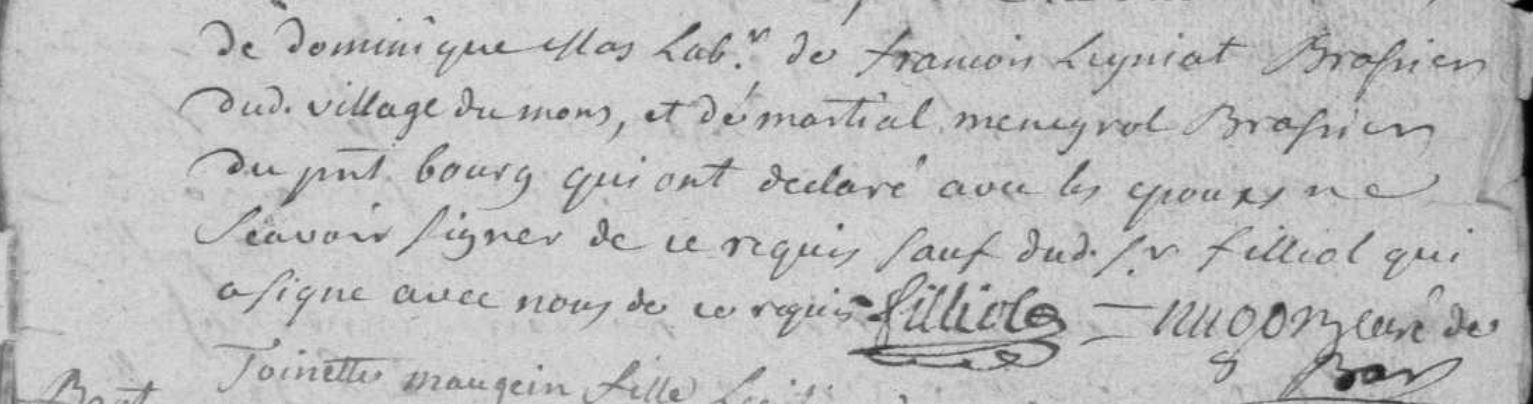 de dominique Mas Lab.r de francois Leyniat Brassier
dud. village du mons, et de martial meneyrol Brassier
du pnt bourg qui ont declaré avec les epouxs ne
scavoir signer de ce requis sauf dud. sr filliol qui
a signe avec nous de ce requis filliol = nugon curé de
Bar
Toinette maugein fille
Bapt